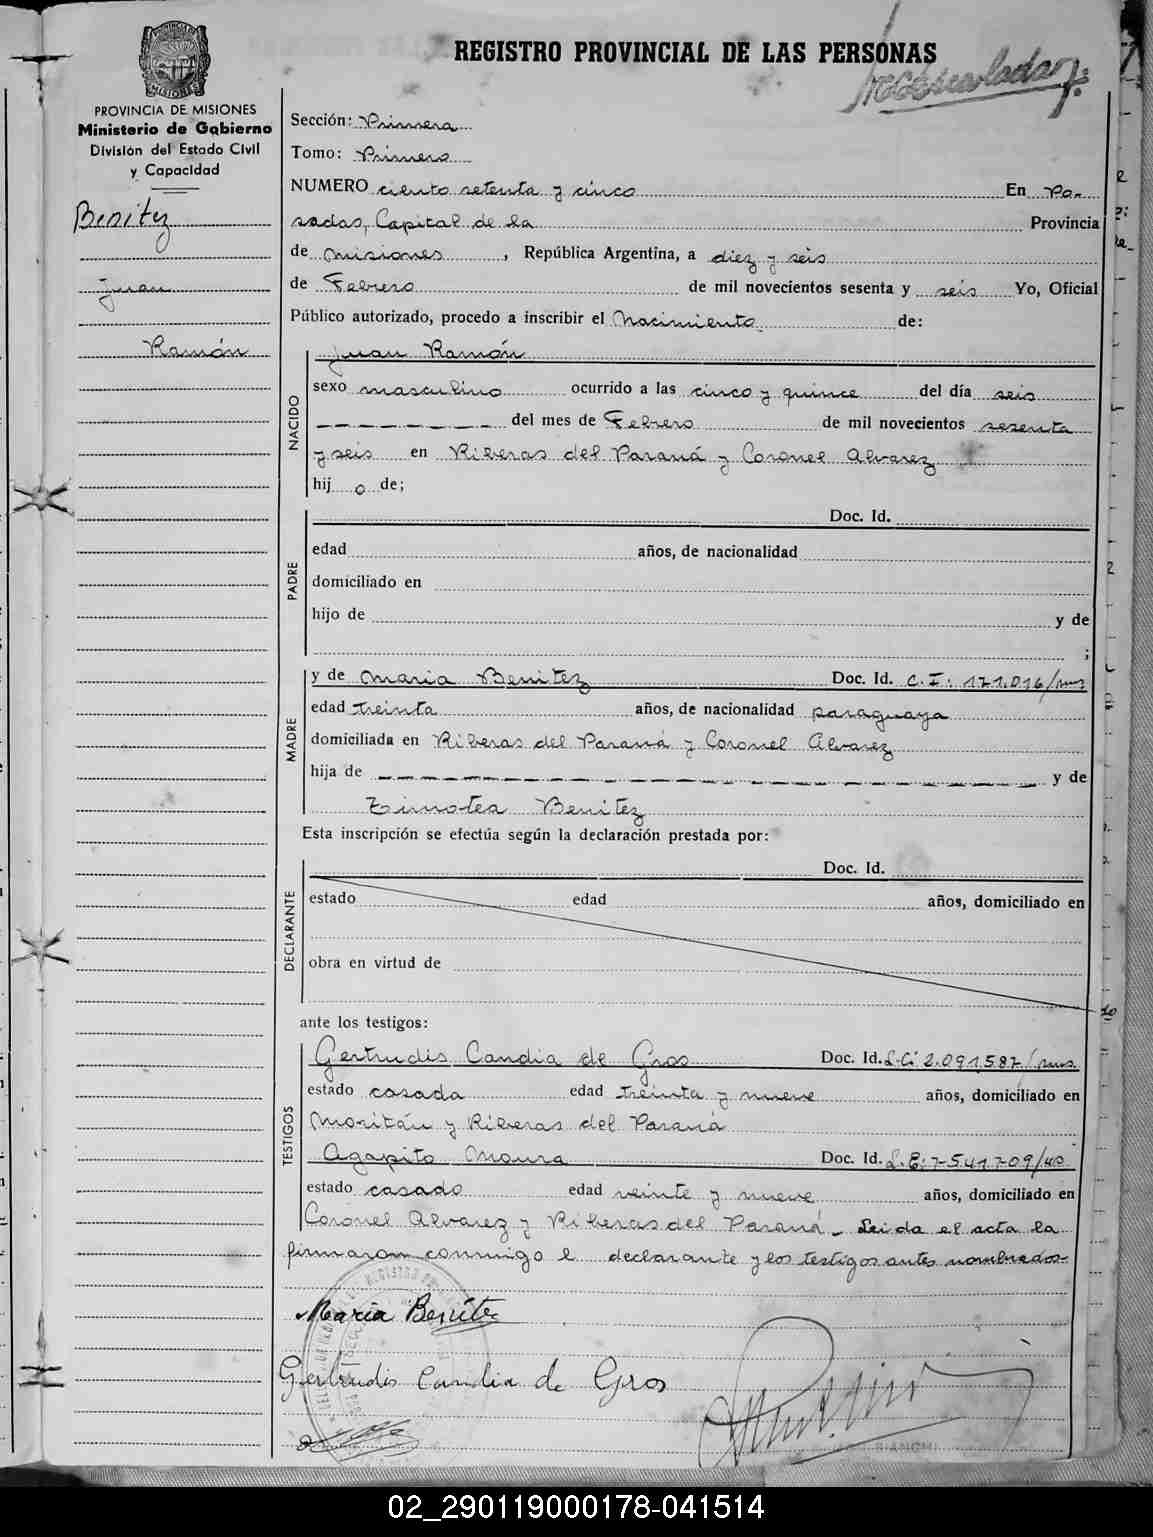 REGISTRO PROVINCIAL DE LAS PERSONAS
PROVINCIA DE MISIONES
Ministerio de Gobierno
División del Estado Civil
y Capacidad
Benitez
Juan
Ramón
Sección: Primera
Tomo: Primero
NUMERO ciento setenta y cinco En Po-
sadas, Capital de la Provincia
de Misiones, República Argentina, a diez y seis
de Febrero de mil novecientos sesenta y seis Yo, Oficial
Público autorizado, procedo a inscribir el Nacimiento de:
NACIDO
Juan Ramón
sexo masculino ocurrido a las cinco y quince del día seis
del mes de Febrero de mil novecientos sesenta
y seis en Riberas del Paraná y Coronel Alvarez
hijo de;
PADRE
Doc. Id.
edad años, de nacionalidad
domiciliado en
hijo de y de
;
MADRE
y de Maria Benitez Doc. Id. C.I: 171.016/mns
edad treinta años, de nacionalidad paraguaya
domiciliada en Riberas del Paraná y Coronel Alvarez
hija de y de
Timotea Benitez
Esta inscripción se efectúa según la declaración prestada por:
DECLARANTE
Doc. Id.
estado edad años, domiciliado en
obra en virtud de
ante los testigos:
TESTIGOS
Gertrudis Candia de Gros Doc. Id. L.C: 2.091.587/mns.
estado casada edad treinta y nueve años, domiciliado en
Moritán y Riberas del Paraná
Agapito Moura Doc. Id. L.E: 7.541.709/
estado casado edad veinte y nueve años, domiciliado en
Coronel Alvarez y Riberas del Paraná - Leida el acta la
firmaron conmigo l declarante y los testigos antes nombrados-
Maria Benitez
Gertrudis Candia de Gros
BIANCHI
02_290119000178-041514